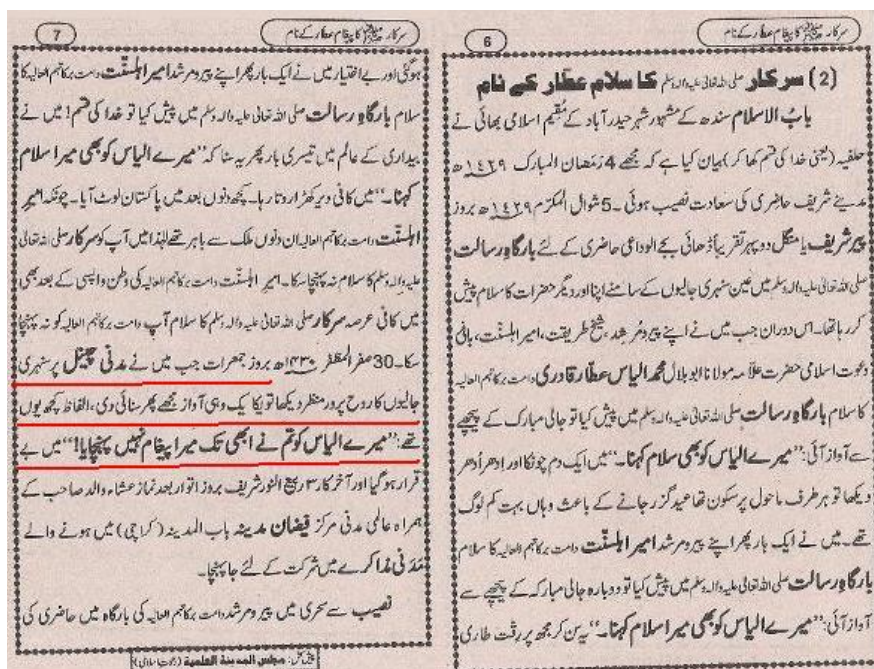 6
سرکار ﷺ کا پیغام عطار کے نام
(2) سرکار صلی اللہ تعالیٰ علیہ والہ وسلم کا سلام عطّار کے نام
بابُ الاسلام سندھ کے مشہور شہر حیدر آباد کے مُقیم اسلامی بھائی نے
حلفیہ (یعنی خدا کی قسم کھا کر) بیان کیا ہے کہ مجھے 4 رَمَضان المبارک ۱٤۲۹ھ
مدینے شریف حاضِری کی سعادت نصیب ہوئی۔ 5 شوال المکرّم ۱٤۲۹ھ بروز
پیر شریف یا منگل دوپہر تقریباً ڈھائی بجے الوداعی حاضری کے لئے بارگاہِ رسالت
صلی اللہ تعالیٰ علیہ والہ وسلم میں عین سنہری جالیوں کے سامنے اپنا اور دیگر حضرات کا سلام پیش
کر رہا تھا۔ اس دوران جب میں نے اپنے پیر ومُرشِد، شیخِ طریقت، امیرِ اہلسنّت، بانیِ
دعوتِ اسلامی حضرت علّامہ مولانا ابو بلال محمد الیاس عطّار قادری دامت برکاتہم العالیہ
کا سلام بارگاہِ رسالت صلی اللہ تعالیٰ علیہ والہ وسلم میں پیش کیا تو جالی مبارک کے پیچھے
سے آواز آئی: ”میرے الیاس کو بھی سلام کہنا۔“ میں ایک دم چونکا اور اِدھر اُدھر
دیکھا تو ہر طرف ماحول پرسکون تھا عید گزر جانے کے باعث وہاں بہت کم لوگ
تھے۔ میں نے ایک بار پھر اپنے پیر ومرشد امیرِ اہلسنّت دامت برکاتہم العالیہ کا سلام
بارگاہِ رسالت صلی اللہ تعالیٰ علیہ والہ وسلم میں پیش کیا تو دوبارہ جالی مبارکہ کے پیچھے سے
آواز آئی: ”میرے الیاس کو بھی میرا سلام کہنا۔“ یہ سن کر مجھ پر رقّت طاری
7
سرکار ﷺ کا پیغام عطار کے نام
ہوگئی اور بے اختیار میں نے ایک بار پھر اپنے پیر ومرشد امیرِ اہلسنّت دامت برکاتہم العالیہ کا
سلام بارگاہِ رسالت صلی اللہ تعالیٰ علیہ والہ وسلم میں پیش کیا تو خدا کی قسم! میں نے
بیداری کے عالم میں تیسری بار پھر یہ سنا کہ ”میرے الیاس کو بھی میرا سلام
کہنا۔“ میں کافی دیر کھڑا روتا رہا۔ کچھ دنوں بعد میں پاکستان لوٹ آیا۔ چونکہ امیرِ
اہلسنّت دامت برکاتہم العالیہ ان دنوں ملک سے باہر تھے لہٰذا میں آپ کو سرکار صلی اللہ تعالیٰ
علیہ والہ وسلم کا سلام نہ پہنچا سکا۔ امیرِ اہلسنّت دامت برکاتہم العالیہ کی وطن واپسی کے بعد بھی
میں کافی عرصہ سرکار صلی اللہ تعالیٰ علیہ والہ وسلم کا سلام آپ دامت برکاتہم العالیہ کو نہ پہنچا
سکا۔ 30 صفر المظفر ۱٤۳۰ھ بروز جمعرات جب میں نے مدنی چینل پر سنہری
جالیوں کا روح پرور منظر دیکھا تو یکایک وہی آواز مجھے پھر سنائی دی، الفاظ کچھ یوں
تھے: ”میرے الیاس کو تم نے ابھی تک میرا پیغام نہیں پہنچایا!“ میں بے
قرار ہو گیا اور آخر کار ۳ ربیع النور شریف بروز اتوار بعد نماز عشاء والد صاحب کے
ہمراہ عالمی مدنی مرکز فیضانِ مدینہ باب المدینہ (کراچی) میں ہونے والے
مَدَنی مذاکرے میں شرکت کے لئے جا پہنچا۔
نصیب سے سحری میں پیر ومرشد دامت برکاتہم العالیہ کی بارگاہ میں حاضری کی
پیش کش: مجلس المدینۃ العلمیۃ (دعوتِ اسلامی)